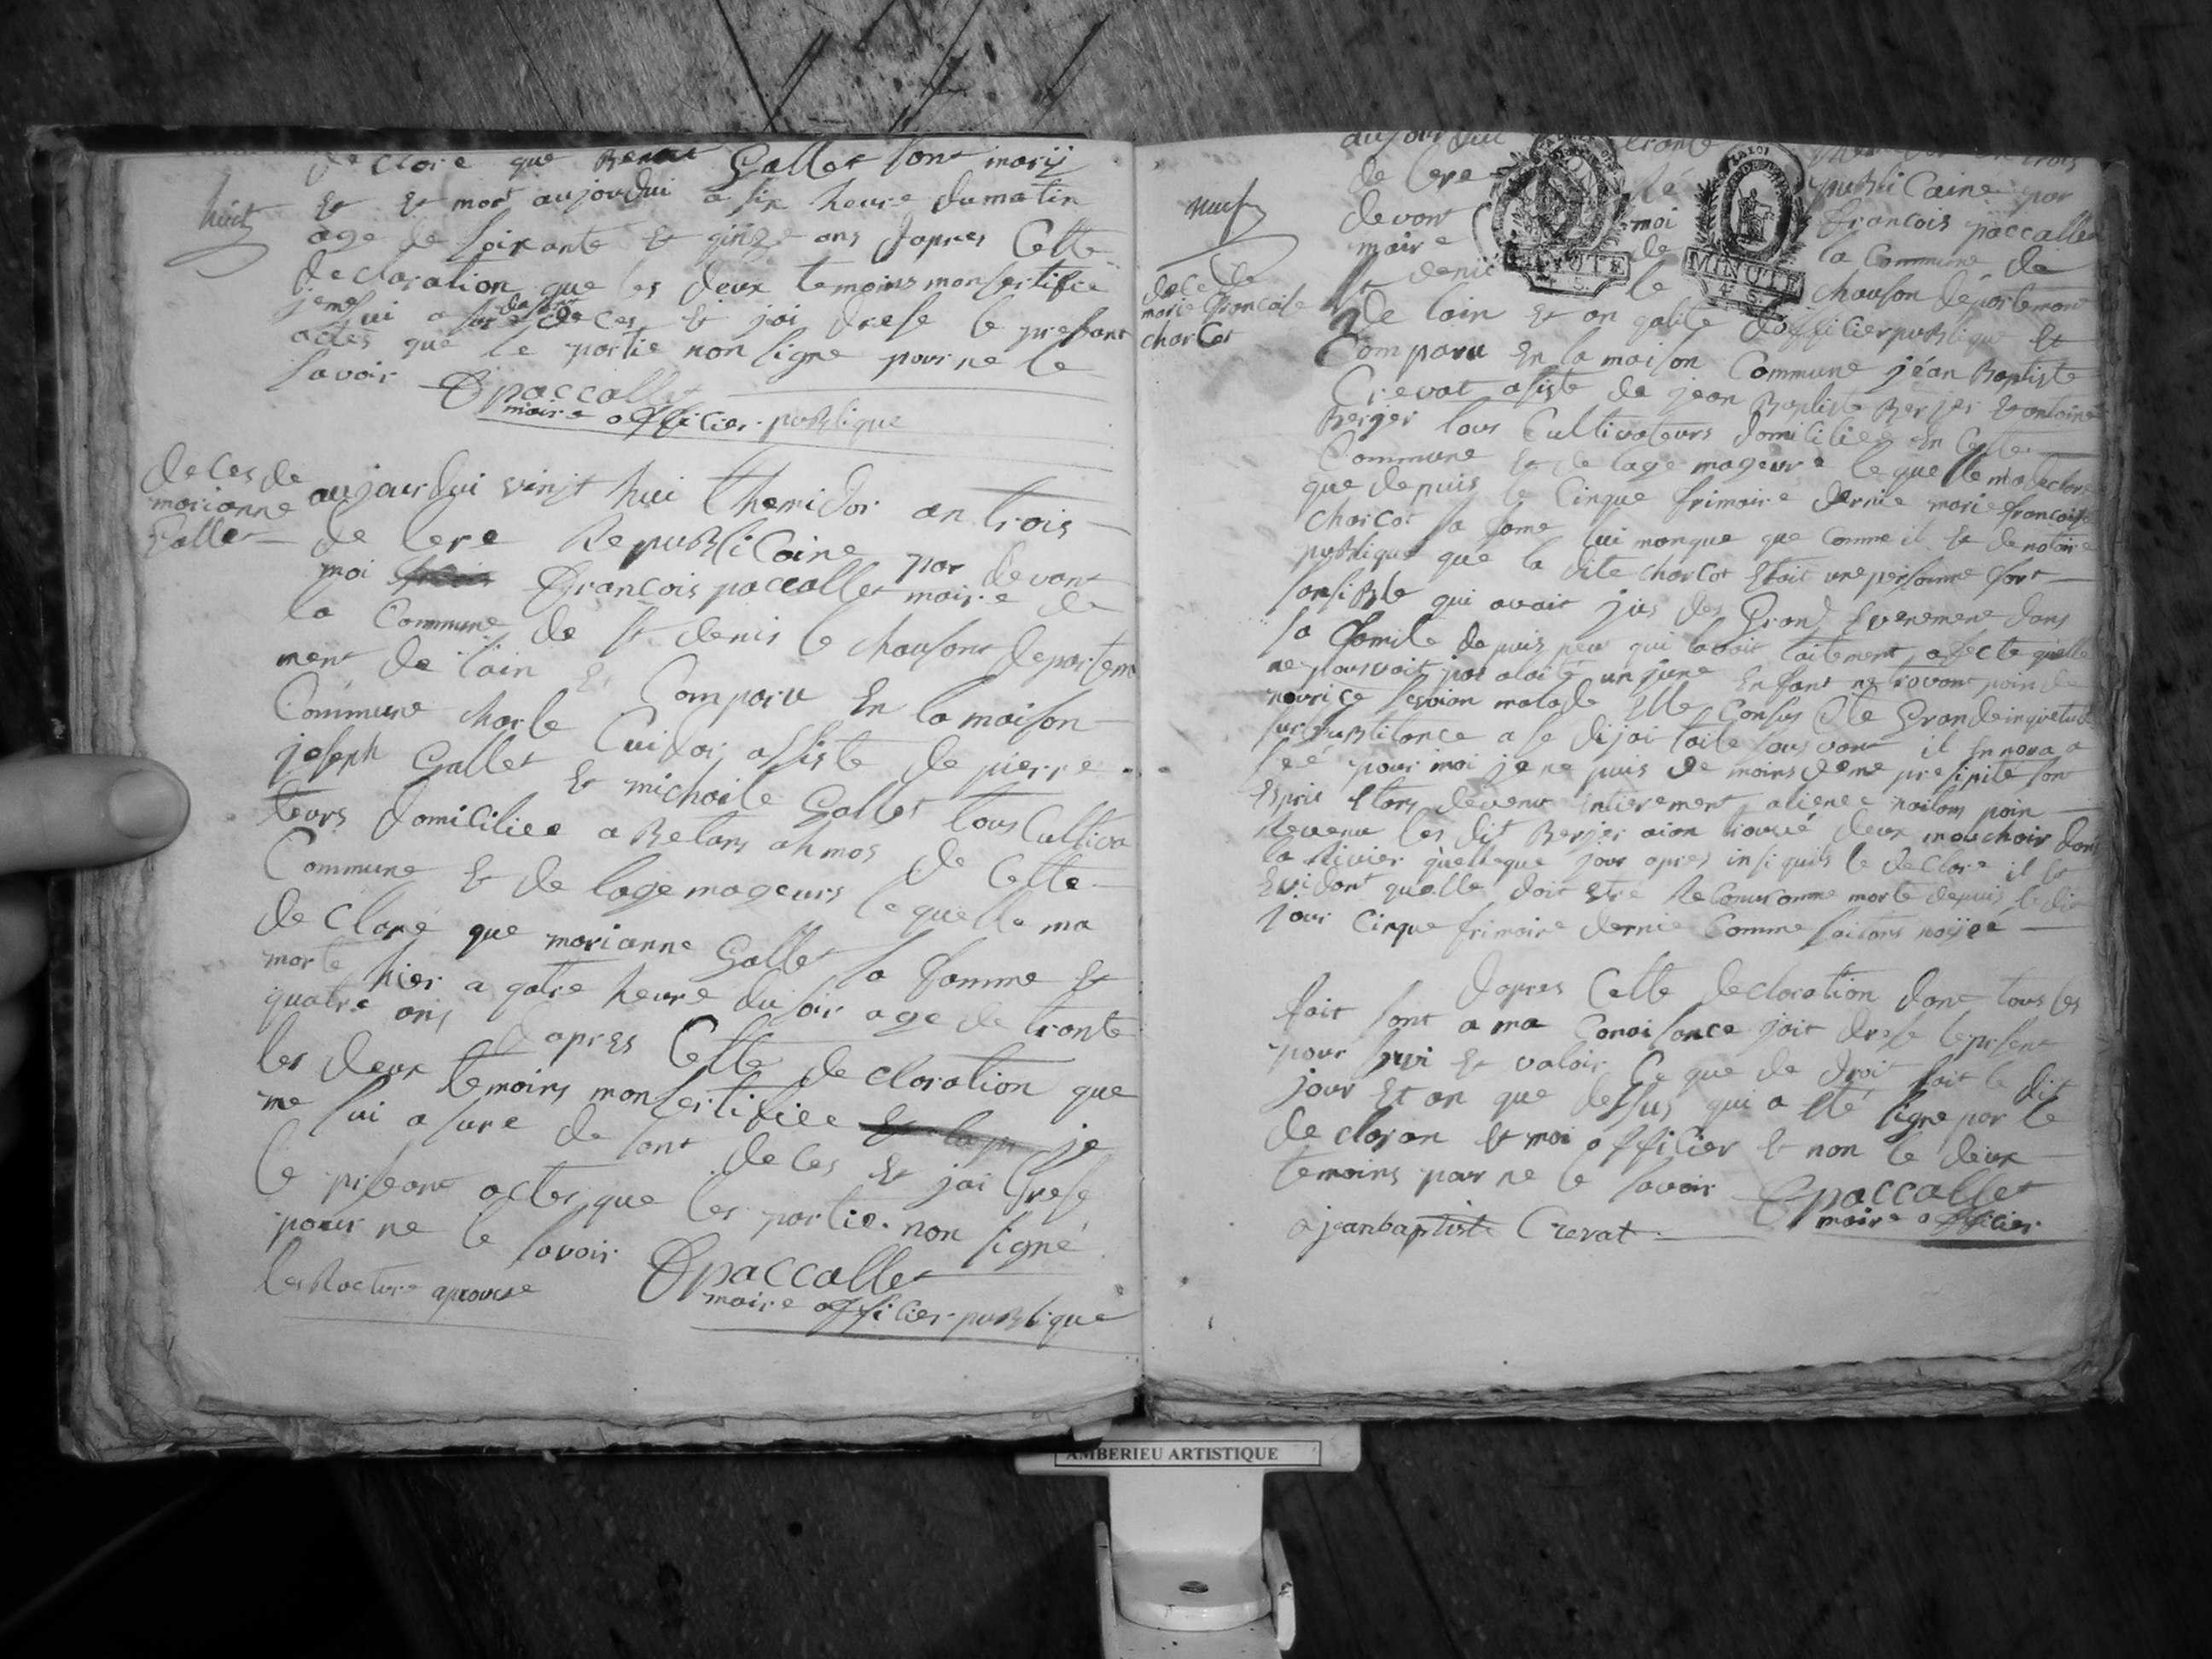 huit
de clore que Benoit Gallet sont marij
Et Et mort aujourdui a six heure du matin
age de soixante Et quinze ans dapres Cette
declaration que les deux temoins mon sertifiee
je me sui asure de sont deces Et jai drese le present
actes que le partie non signe pour ne le
savoir
fpaccallet
maire officier publique
deces de
marianne
Gallet
aujourdui vinjt hui thermidor an trois
de lere Republicaine par devant
moi françois paccallet maire de
la Commune de st denis le chausont departem
ment de lain Et Comparu En la maison
Commune charle Cuidor assiste de pierre
joseph Gallet Et michaile Gallet tous Cultiva
teurs domiciliee a Betans ahmos de Cette
Commune Et de lage mageurs lequelle ma
de claré que marianne Gallet sa famme Et
morte hier a qatre heure du soir age de trante
quatre ans dapres Cette declaration que
les deux temoins mon sertifiee je
me sui asure de sont deces Et jai drese
le present actes que les partie non signé
pour ne le savoir
fpaccallet
maire officier publique
les Racture aprouve
neuf
decede
marie francoise
charcot
aujourdui trante an trois
de lere Ré publiCaine par
devant moi francois paccallet
maire de la Commune de
st denis le chauson departemant
de lain Et an qalite dofficier publique Et
Comparu En la maison Commune jéan Baptiste
Crevat asiste de jean Baptiste Berjer Et antoine
Berger tous Cultivateurs domiciliee En Cette
Commune Et de lage mageure lequelle ma declare
que depuis le Cinque frimaire dernie marie francoise
charcot sa fame lui manque que comme il Et de notoire
publique que la dite charcot Etait une personne fort
sansible qui avait jus des Grand Evenement dans
sa famile depuis peu qui lavait taitement afecte quelle
ne pouvoit pas alaité un june Enfant ne trovant poin de
nourice malade Elle Consus de Grande inquietude
sur substitance a se dijai
pour moi je ne puis de moins de me presipité
Espris Etant devenu intierement alienee poin
Revenu les dit Berjer aion trouvé deux mouchoir dans
la Rivier quelleque jour apres insi quils le declare il Et
Evidant quelle doit Etre Reconu comme morte depuis le dit
jour Cinque frimaire dernie Comme noijee
dapres Cette declaration dont tous les
fait sont a ma Conaisance jait drese le present
pour servi Et valoir Ce que de droit fait le dit
jour Et an que dessus qui a été signe par le
de claran Et moi officier Et non le deux
temoins par ne le savoir
fpaccallet
maire officier
jeanbaptiste Crevat
MINUTE
MINUTE
AMBERIEU ARTISTIQUE